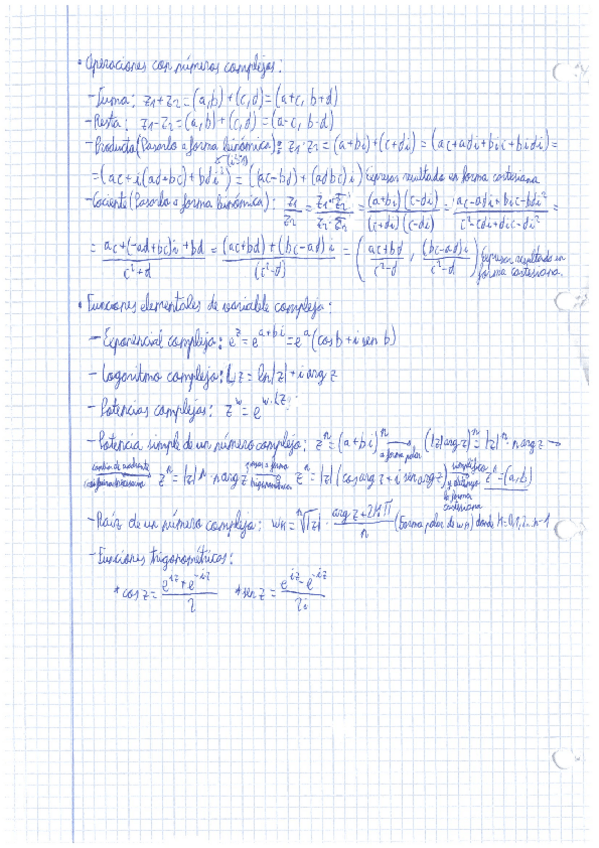 • Operaciones con números complejos:
- Suma: z1+z2=(a,b)+(c,d)=(a+c, b+d)
- Resta: z1-z2=(a,b)+(c,d)=(a-c, b-d)
- Producto (Pasarlo a forma binómica): z1·z2=(a+bi)+(c+di)=(ac+adi+bic+bidi)=
=(ac+i(ad+bc)+bdi²)=((ac-bd)+(adbc)i) Expresar resultado en forma cartesiana
- Cociente (Pasarlo a forma binómica): z1/z2 = z1·z̄2/z2·z̄2 = (a+bi)(c-di)/(c+di)(c-di) = ac-adi+bic-bdi²/c²-cdi+dic-di² =
= ac+(-ad+bc)i+bd/c²+d = (ac+bd)+(bc-ad)i/(c²-d) = (ac+bd/c²-d, (bc-ad)i/c²-d) Expresar resultado en forma cartesiana.
• Funciones elementales de variable compleja:
- Exponencial compleja: e^z=e^(a+bi)=e^a(cos b+i sen b)
- Logaritmo complejo: Lz=ln|z|+i arg z
- Potencias complejas: z^w=e^(w·Lz)
- Potencia simple de un número complejo: z^n=(a+bi)^n → a forma polar (|z|arg z)^n=|z|^n·n arg z →
z^n=|z|^n n arg z → z^n=|z|(cos arg z+i sen arg z) → simplifica y obtengo la forma cartesiana z^n=(a,b)
- Raíz de un número complejo: wk=ⁿ√|z| · arg z+2kπ/n (Forma polar de wk) donde k=0,1,2...n-1
- Funciones trigonométricas:
* cos z = e^(iz)+e^(-iz)/2 * sen z = e^(iz)-e^(-iz)/2i